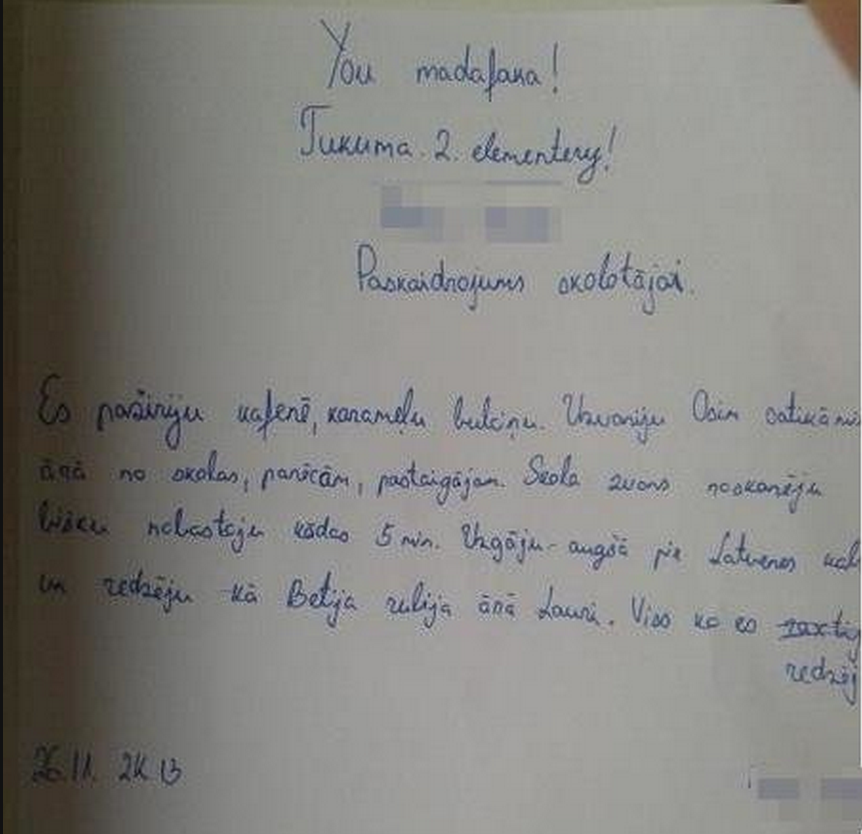 You madafaka!
Tukuma 2. elementery!
Paskaidrojums skolotājai.
Es pažiriju kafenē, karameļu bulciņu. Uzvaniju Osim satikām
ārā no skolas, parēcām, pastaigājam. Skola zvans noskanēju
bišku nobastoju kādas 5 min. Uzgāju augšā pie Latvenes
un redzēju kā Betija rullja ārā Lauri. Viss ko es
redzēj
26.11. 2K13